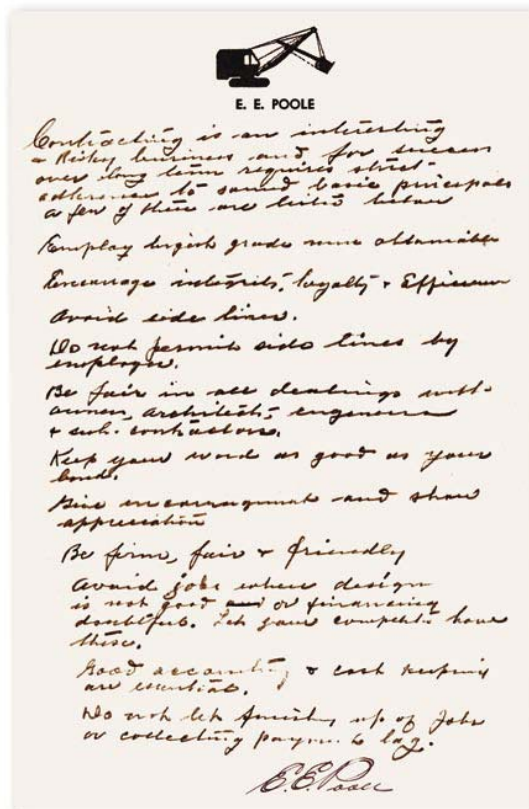 E. E. POOLE
Contracting is an interesting
& Risky business and for success
over long term requires strict
adherence to sound basic principals
a few of these are listed below
Employ highest grade men obtainable
Encourage integrity, loyalty & Efficiency
Avoid side lines.
Do not permit side lines by
employees.
Be fair in all dealings with
owners, architects, engineers
& sub-contractors.
Keep your word as good as your
bond.
Give encouragement and show
appreciation
Be firm, fair & friendly
Avoid jobs where design
is not good or financing
doubtful. Let your competitors have
these.
Good accounting & cost keeping
are essential.
Do not let finishing up of jobs
or collecting payments lag.
E. E. Poole